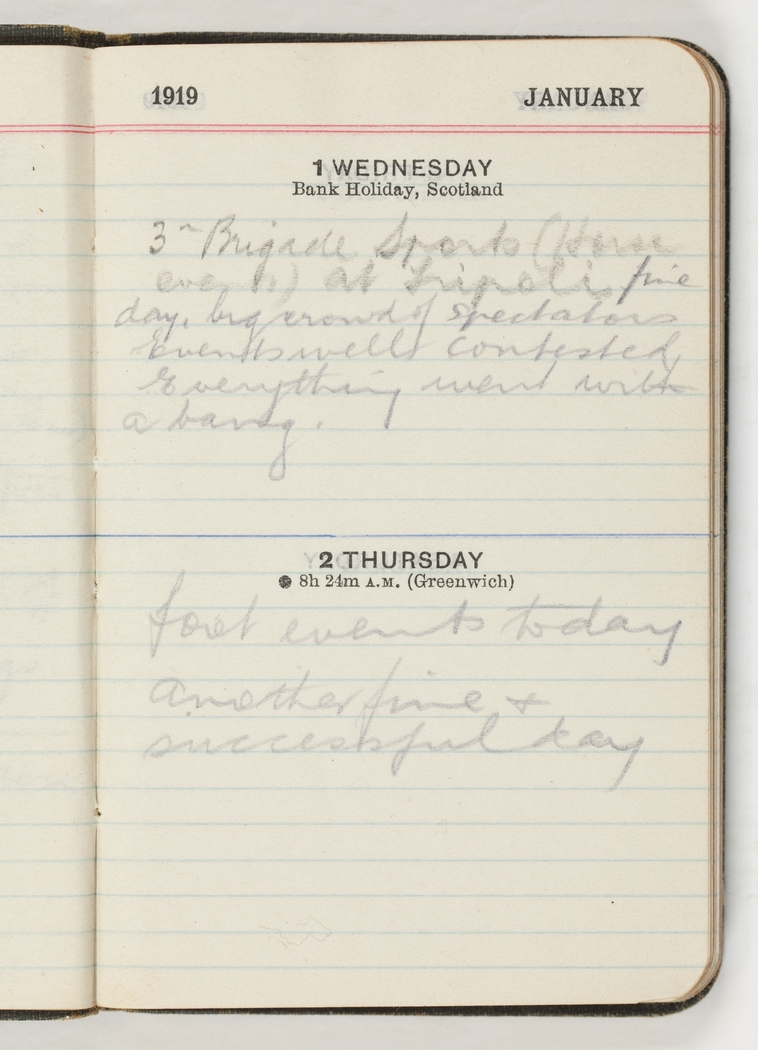 1919 JANUARY
1 WEDNESDAY
Bank Holiday, Scotland
3rd Brigade Sports (Horse
events) at Tripoli, fine
day, big crowd of spectators
Events well contested,
Everything went with
a bang.
2 THURSDAY
8h 24m A.M. (Greenwich)
foot events today
another fine &
successful day